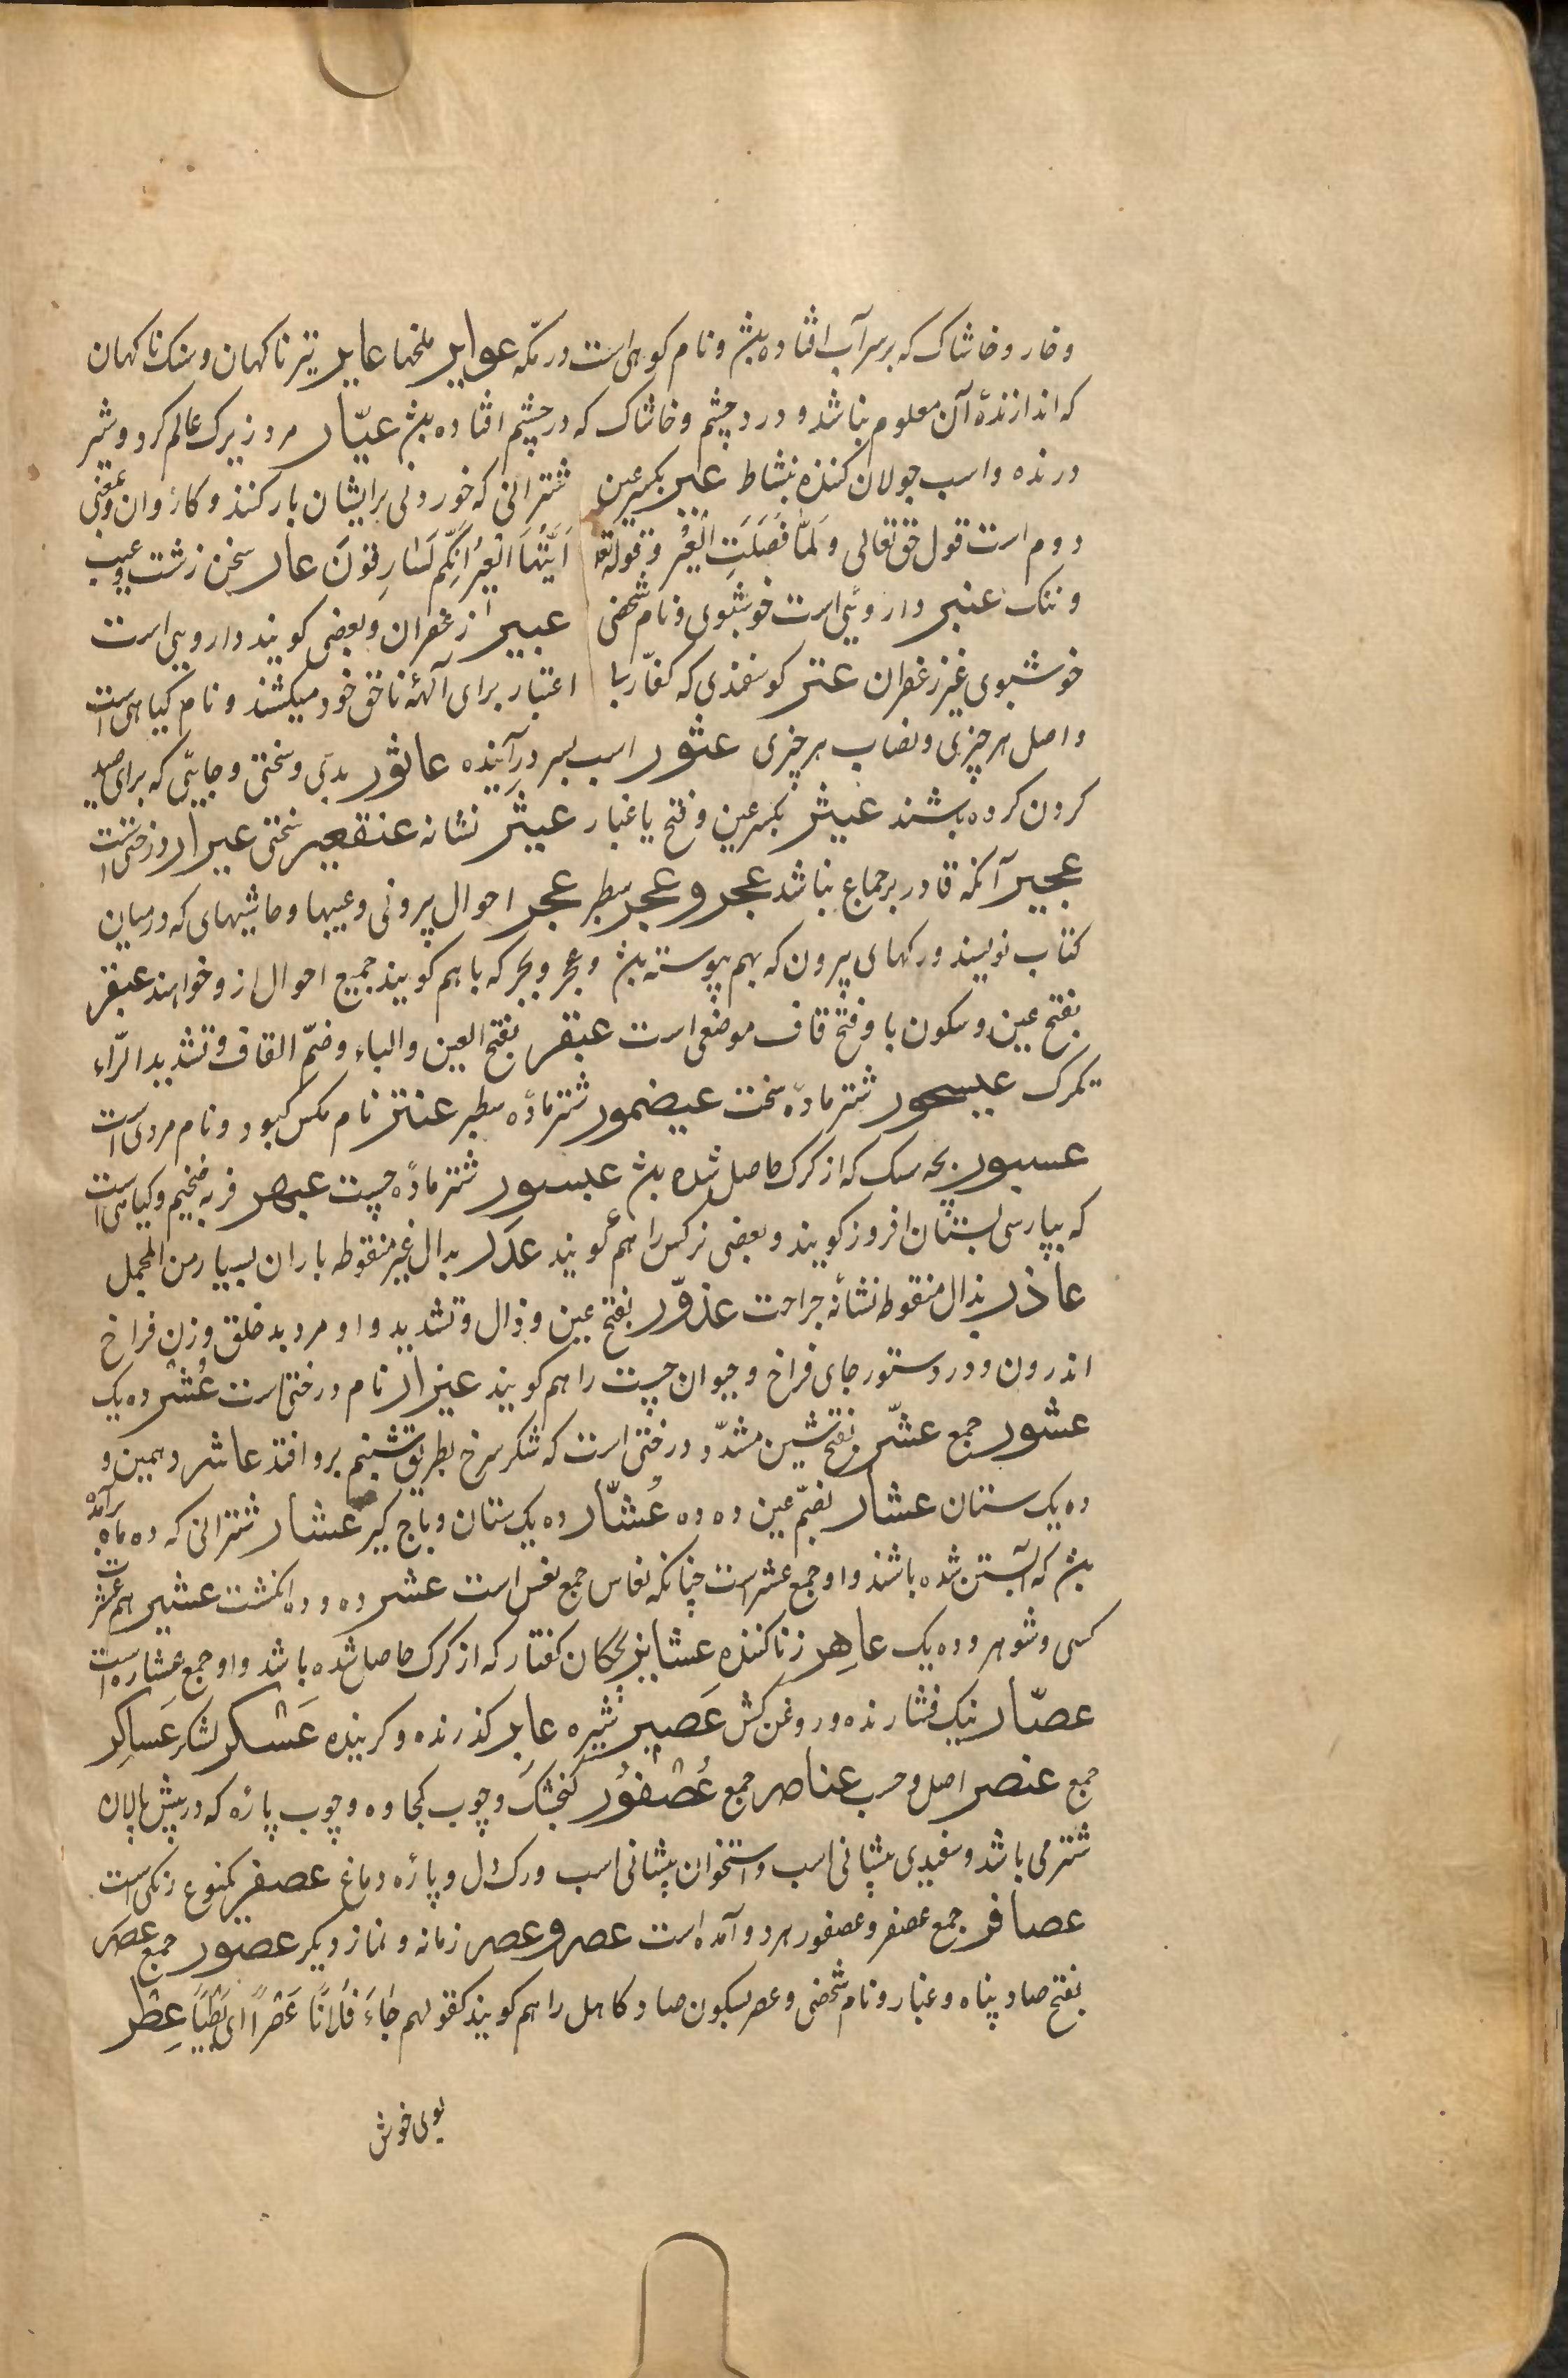 و خار و خاشاک که بر سر آب افتاده بشد و نام کوهی است در مکّه عوایر ملخها عایر تیر ناکهان و سنک ناکهان
که اندازندهٔ آن معلوم نباشد و درد چشم و خاشاک که در چشم افتاده بشد عیّار مرد زیرک عالم کرد و شیر
درنده و اسب جولان کننده بنشاط عیر بکسر عین شترانی که خوردنی بر ایشان بار کنند و کاروان و بمعنی
دوم است قول حق تعالی وَلَمّا فَصَلَتِ الْعِیْر و قوله تعا اَیَّتُهَا الْعِیْرُ اِنَّکُم لَسَارِقُونَ عار سخن زشت و عیب
و ننک عنبر داروئی است خوشبوی و نام شخصی عبیر زعفران و بعضی کویند دارویی است
خوشبوی غیر زعفران عتر کوسفندی که کفّار با اعتبار برای آلهٔه ناحق خود میکشند و نام کیاهی است
و اصل هر چیزی و نصاب هر چیزی عثور اسب بسر درآینده عاثور بدی و سختی و جایی که برای صید
کردن کرده بشند عیثر بکسر عین و فتح یا غبار عیثر نشانه عنقعیر سختی عیرار درختی است
عجیر آنکه قادر بر جماع نباشد عجر و عجر سطبر عجر احوال بیرونی و عیبها و حاشیهای که در میان
کتاب نویسند و رکهای بیرون که بهم پیوسته بشد و عجر و بجر که با هم کویند جمیع احوال ازو خواهند عبقر
بفتح عین و سکون با و فتح قاف موضعی است عبقر بفتح العین و الباء و ضمّ القاف و تشدید الرّاء
تکرک عیسجور شتر مادّه سخت عیضمور شتر مادّه سطبر عنتر نام مکس کبود و نام مردی است
عسبور بچه سک که از کرک حاصل شده بشد عبسور شتر مادّه چست عبهر فربه ضخیم و کیاهی است
که بپارسی بستان افروز کویند و بعضی نرکس را هم کویند عدر بدال غیر منقوطه باران بسیار من المجمل
عاذر بذال منقوطه نشانه جراحت عذوّر بفتح عین و ذال و تشدید واو مرد بد خلق و زن فراخ
اندرون و در دستور جای فراخ و حیوان چست را هم کویند عیزار نام درختی است عُشْر ده یک
عشور جمع عشّر بفتح شین مشدّد درختی است که شکر سرخ بطریق شبنم برو افتد عاشر دهمین و
ده یک ستان عشار بضمّ عین ده ده عُشّار ده یک ستان و باج کیر عشار شترانی که ده ماه برآمده
بشد که آبستن شده باشند و او جمع عشر است چنانکه نفاس جمع نفس است عشر ده و ده انکشت عشیر هم عشرت
کسی و شوهر و ده یک عاهِر زنا کننده عشایر بچکان کفتار که از کرک حاصل شده باشد و او جمع عشاره است
عصّار نیک فشارنده و روغن کش عَصیر شیره عابر کذرنده و کرینده عَسْکر لشکر عَساکِر
جمع عنصر اصل و حسب عناصر جمع عُصْفُوْر کنجشک و چوب کجاوه و چوب پاره که در پیش پالان
شتر می باشد و سفیدی پیشانی اسب و استخوان پیشانی اسب و رک دل و پاره دماغ عصفر یکنوع رنکی است
عصافر جمع عصفر و عصفور هر دو آمده است عصر و عصر زمانه و نماز دیکر عصور جمع عصَر
بفتح صاد پناه و غبار و نام شخصی و عصر بسکون صاد کاهل را هم کویند کقولهم جَاءَ فُلَانًا عَصْراً ای بَطِیًا عِطْر
بوی خوش